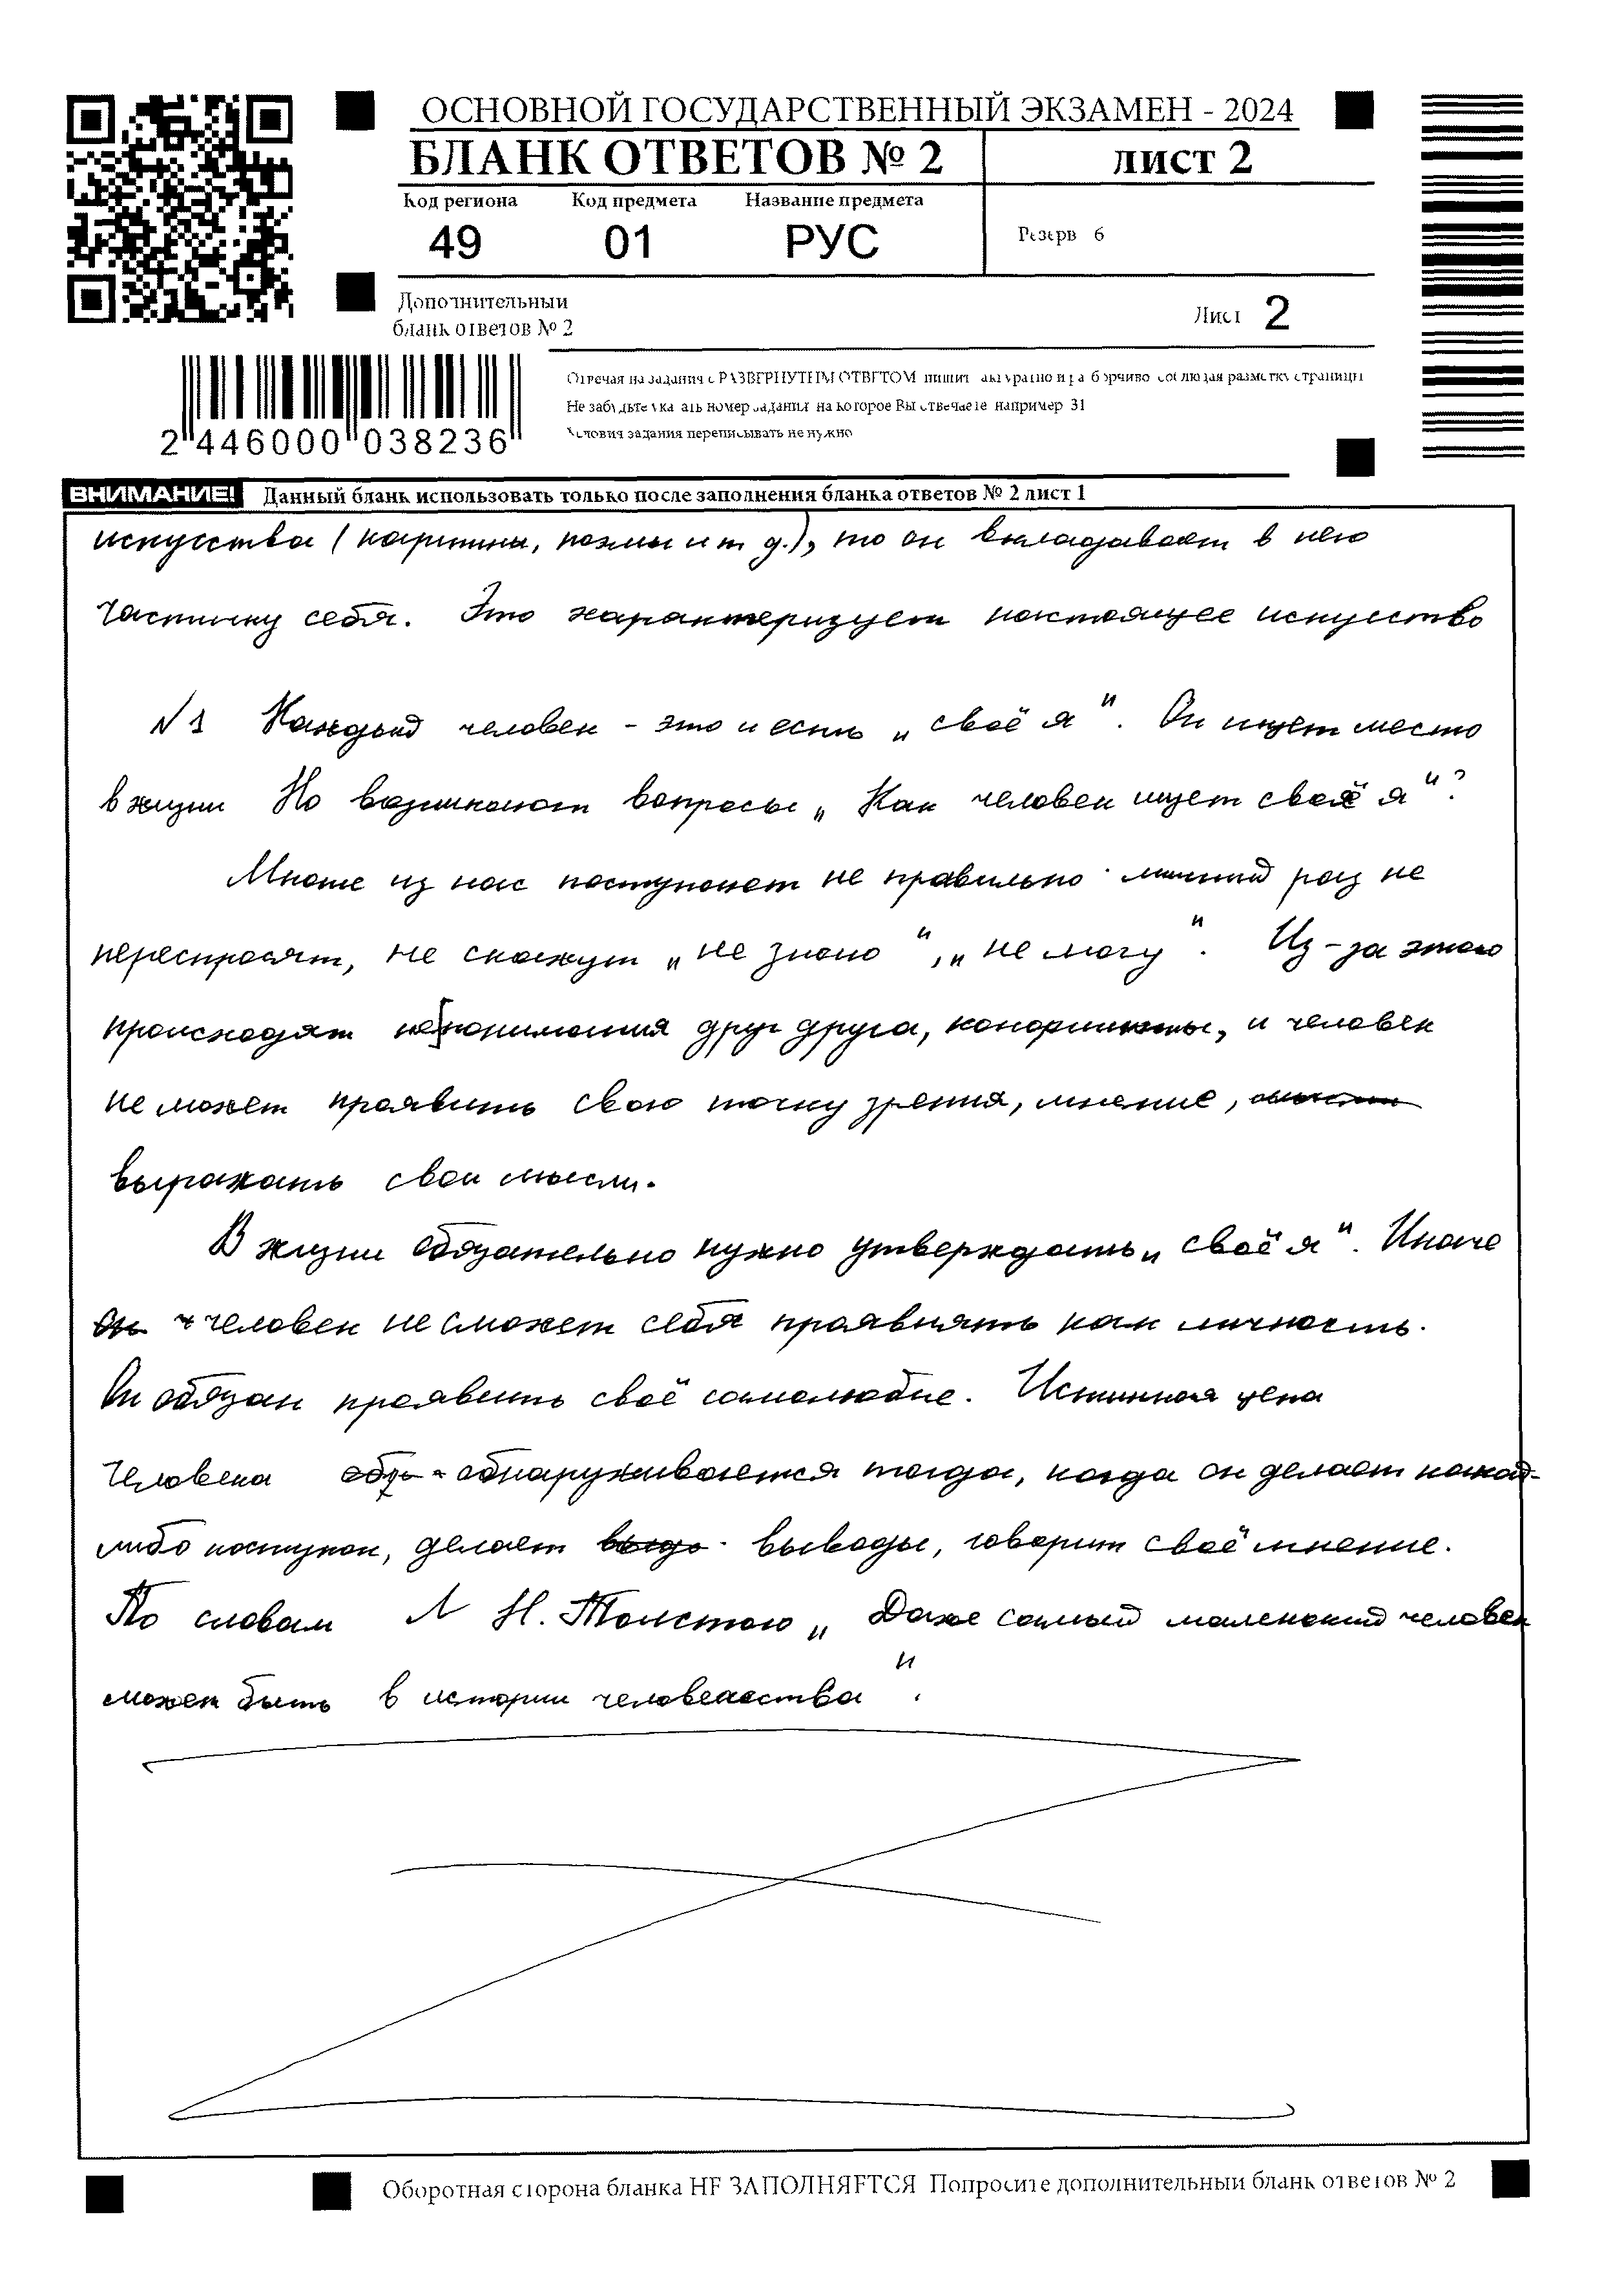 ОСНОВНОЙ ГОСУДАРСТВЕННЫЙ ЭКЗАМЕН - 2024
БЛАНК ОТВЕТОВ № 2 лист 2
Код региона Код предмета Название предмета
49 01 РУС Резерв 6
Дополнительный
бланк ответов № 2
Лист 2
Отвечая на задания с РАЗВЕРНУТЫМ ОТВЕТОМ пишите аккуратно и разборчиво соблюдая разметку страницы
Не забудьте указать номер задания на которое Вы отвечаете например 31
Условия задания переписывать не нужно
2 446000 038236
ВНИМАНИЕ! Данный бланк использовать только после заполнения бланка ответов № 2 лист 1
искусства (картины, поэмы и т д.), то он вкладавает в нею
частичку себя. Это характеризует настоящее искуство
N 1 Каждый человек - это и есть „своё я". Он ищет место
в жизни Но возникают вопросы „Как человек ищет своё я"?
Многие из нас поступают не правильно лишний раз не
переспросят, не скажут „не знаю", „не могу". Из-за этого
происходят непонимания друг друга, конфликты, и человек
не может проявить свою точку зрения, мнение,
выражать свои мысли.
В жизни обязательно нужно утверждать „своё я". Иначе
Он человек не сможет себя проявлять как личность.
Он обязан проявить своё самолюбие. Истинная цена
человека обр обнаруживается тогда, когда он делает какой-
либо поступок, делает выдо выводы, говорит своё мнение.
По словам Л Н. Толстого „Даже самый маленький человек
может быть в истории человечества".
Оборотная сторона бланка НЕ ЗАПОЛНЯЕТСЯ Попросите дополнительный бланк ответов № 2